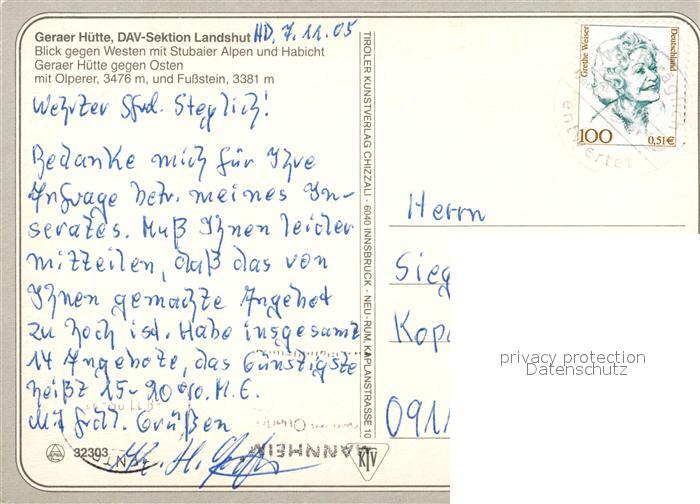 Geraer Hütte, DAV-Sektion Landshut
HD, 7.11.05
Blick gegen Westen mit Stubaier Alpen und Habicht
Geraer Hütte gegen Osten
mit Olperer, 3476 m, und Fußstein, 3381 m
Werter Sfrd. Steglich!
Bedanke mich für Ihre
Anfrage betr. meines In-
serates. Muß Ihnen leider
mitteilen, daß das von
Ihnen gemachte Angebot
zu hoch ist. Habe insgesamt
14 Angebote, das Günstigste
heißt 15-20% M.E.
Mit frdl. Grüßen
32303
MANNHEIM
KTV
TIROLER KUNSTVERLAG CHIZZALI · 6040 INNSBRUCK · NEU-RUM, KAPLANSTRASSE 10
Grethe Weiser
Deutschland
100
0,51€
entwertet
Herrn
Sieg
Kop
0911
privacy protection
Datenschutz